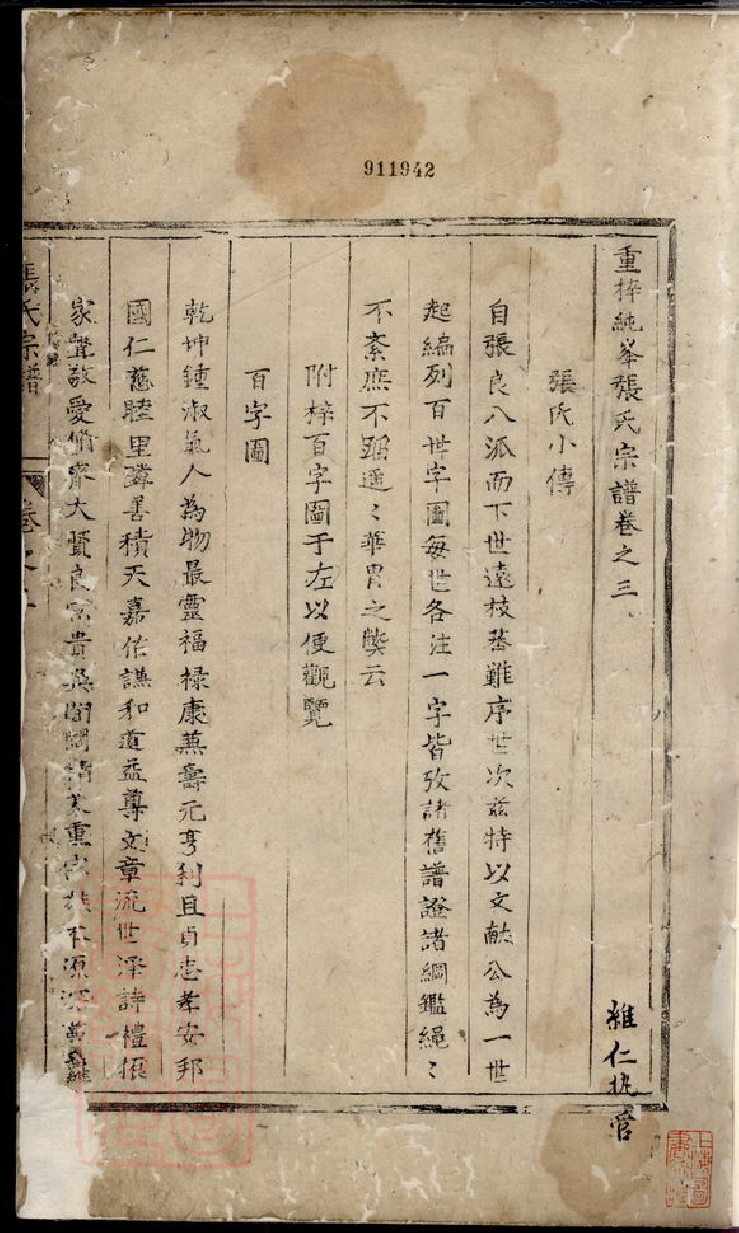 911942
重梓純峯張氏宗譜卷之三
雜仁執管
張氏小傳
自張良八派而下世遠枝蕃難序世次茲特以文献公為一世
起編列百世字圖每世各注一字皆攷諸舊譜證諸綱鑑繩〻
不紊庶不蹈遥〻華胄之獘云
附梓百字圖于左以便觀覽
百字圖
乾坤鍾淑氣人為物最靈福禄康蒹壽元亨利且貞忠孝安邦
國仁慈睦里鄰善積天嘉佑謙和道益尊文章流世澤詩禮振
家聲敬愛脩齊大賢良富貴 重 源
張氏宗譜
卷之三